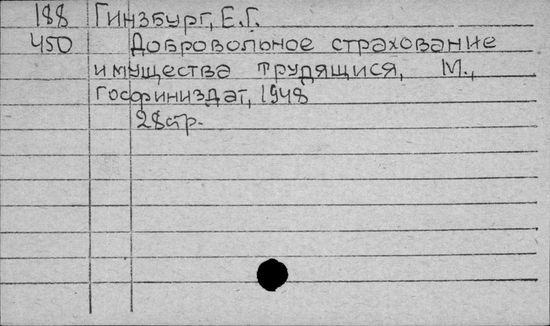 188 Гинзбург, Е.Г.
450 Добровольное страхование
имущества трудящися, М.,
Госфиниздат, 1948
28стр.